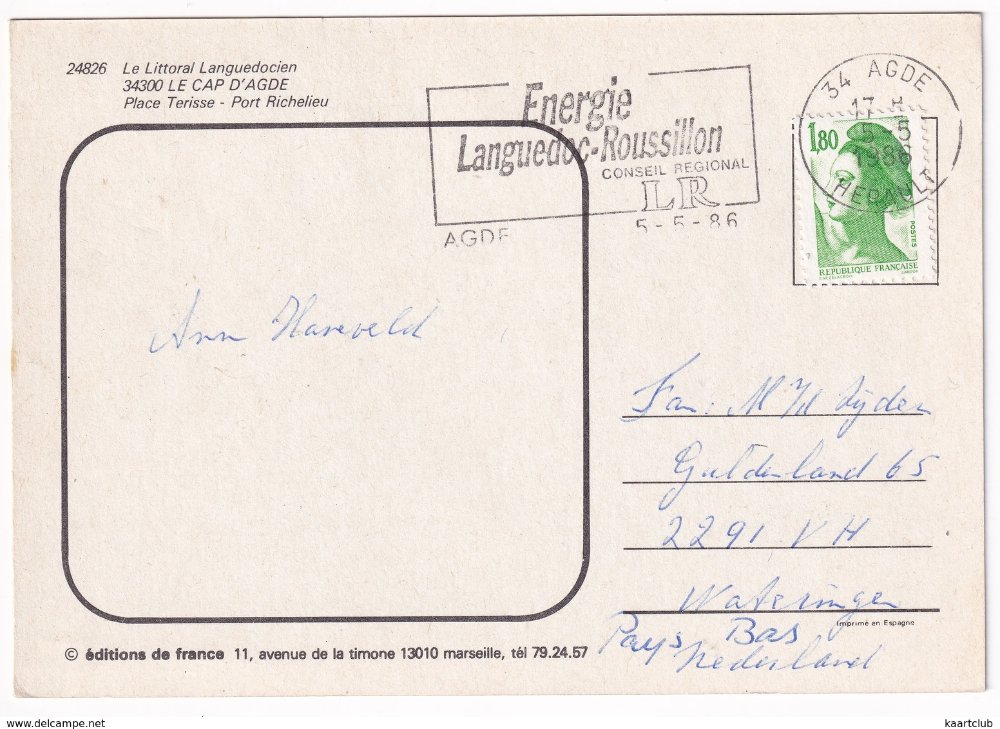 24826 Le Littoral Languedocien
34300 LE CAP D'AGDE
Place Terisse - Port Richelieu
Energie
Languedoc-Roussillon
CONSEIL REGIONAL
LR
AGDE
5-5-86
34 AGDE
17 H
5-5
1986
HERAULT
1,80
POSTES
REPUBLIQUE FRANÇAISE
Ann Hareveld
Fam: M
Guldenland 65
2291 VH
Wateringen
Imprimé en Espagne
Pays Bas
Nederland
© éditions de france 11, avenue de la timone 13010 marseille, tél 79.24.57
www.delcampe.net
kaartclub